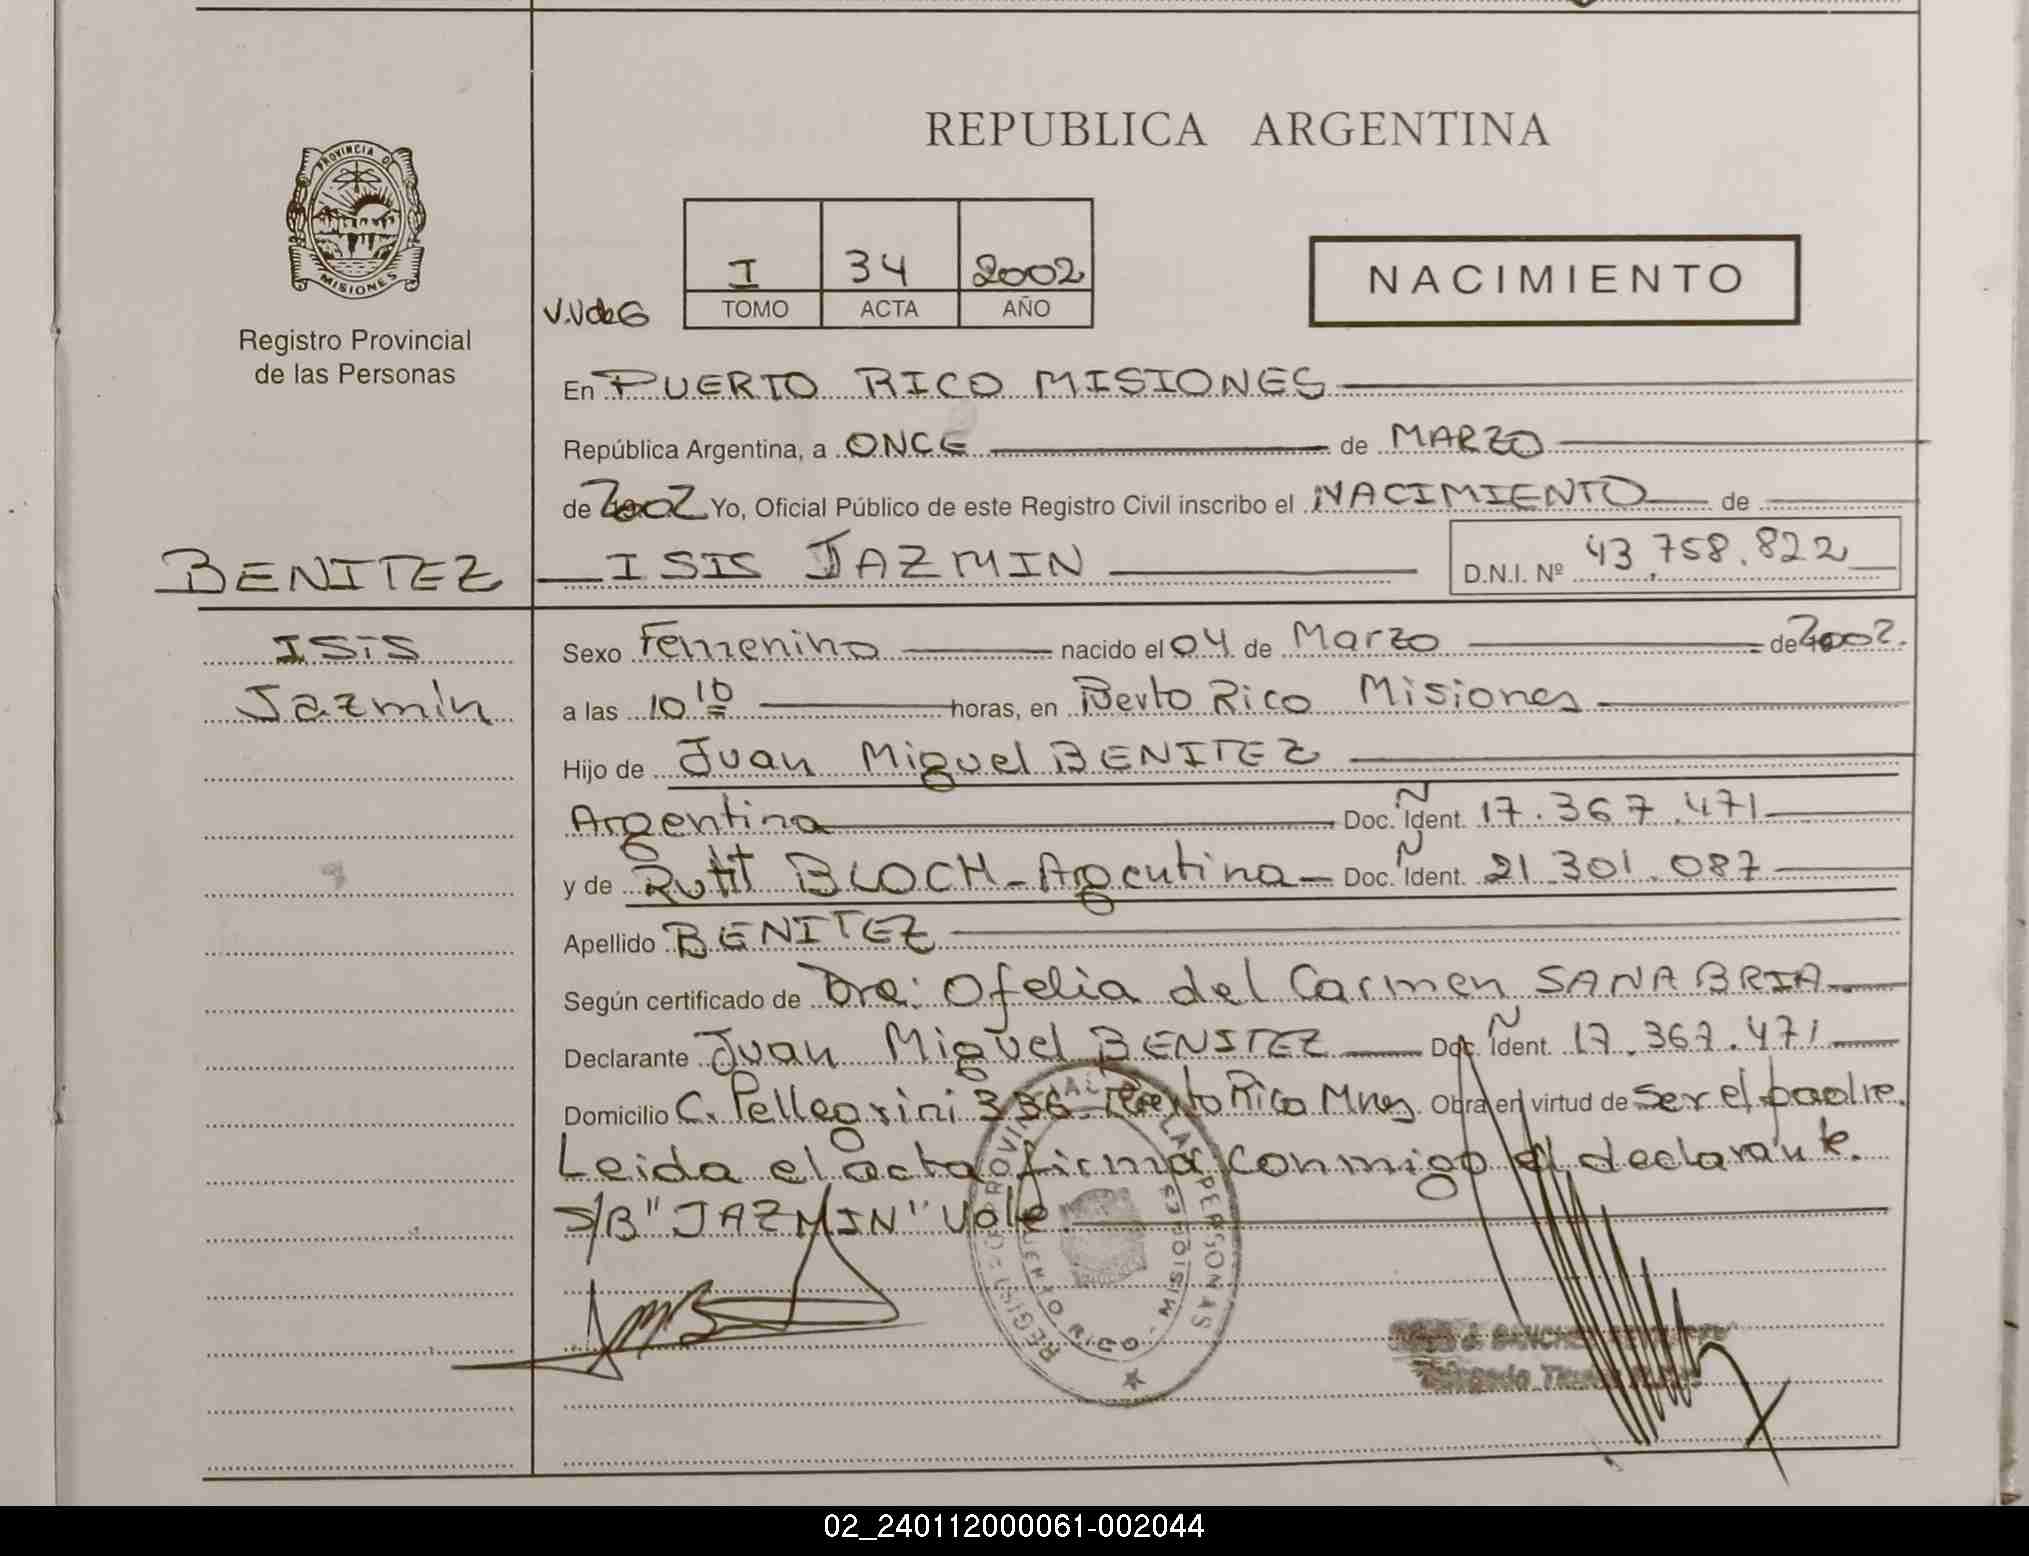 REPUBLICA ARGENTINA
PROVINCIA D
MISIONES
Registro Provincial
de las Personas
V.V de G
I 34 2002
TOMO ACTA AÑO
NACIMIENTO
En PUERTO RICO MISIONES
República Argentina, a ONCE de MARZO
de 2002 Yo, Oficial Público de este Registro Civil inscribo el NACIMIENTO de
BENITEZ ISIS JAZMIN D.N.I. Nº 43.758.822
ISIS
Jazmin
Sexo Femenino nacido el 04 de Marzo de 2002.
a las 10 10 horas, en Puerto Rico Misiones
Hijo de Juan Miguel BENITEZ
Argentina Doc. Ñ Ident. 17.367.471
y de Rutt BLOCH - Argentina - Doc. Ñ Ident. 21.301.087
Apellido BENITEZ
Según certificado de Dra: Ofelia del Carmen SANABRIA
Declarante Juan Miguel BENITEZ Doc. Ñ Ident. 17.367.471
Domicilio C. Pellegrini 336 Puerto Rico Mnes. Obra en virtud de ser el padre.
Leida el acta firma conmigo el declarante.
S/B "JAZMIN" Vale
REGISTRO PROVINCIAL LAS PERSONAS
PUERTO RICO - MISIONES
Titular
02_240112000061-002044